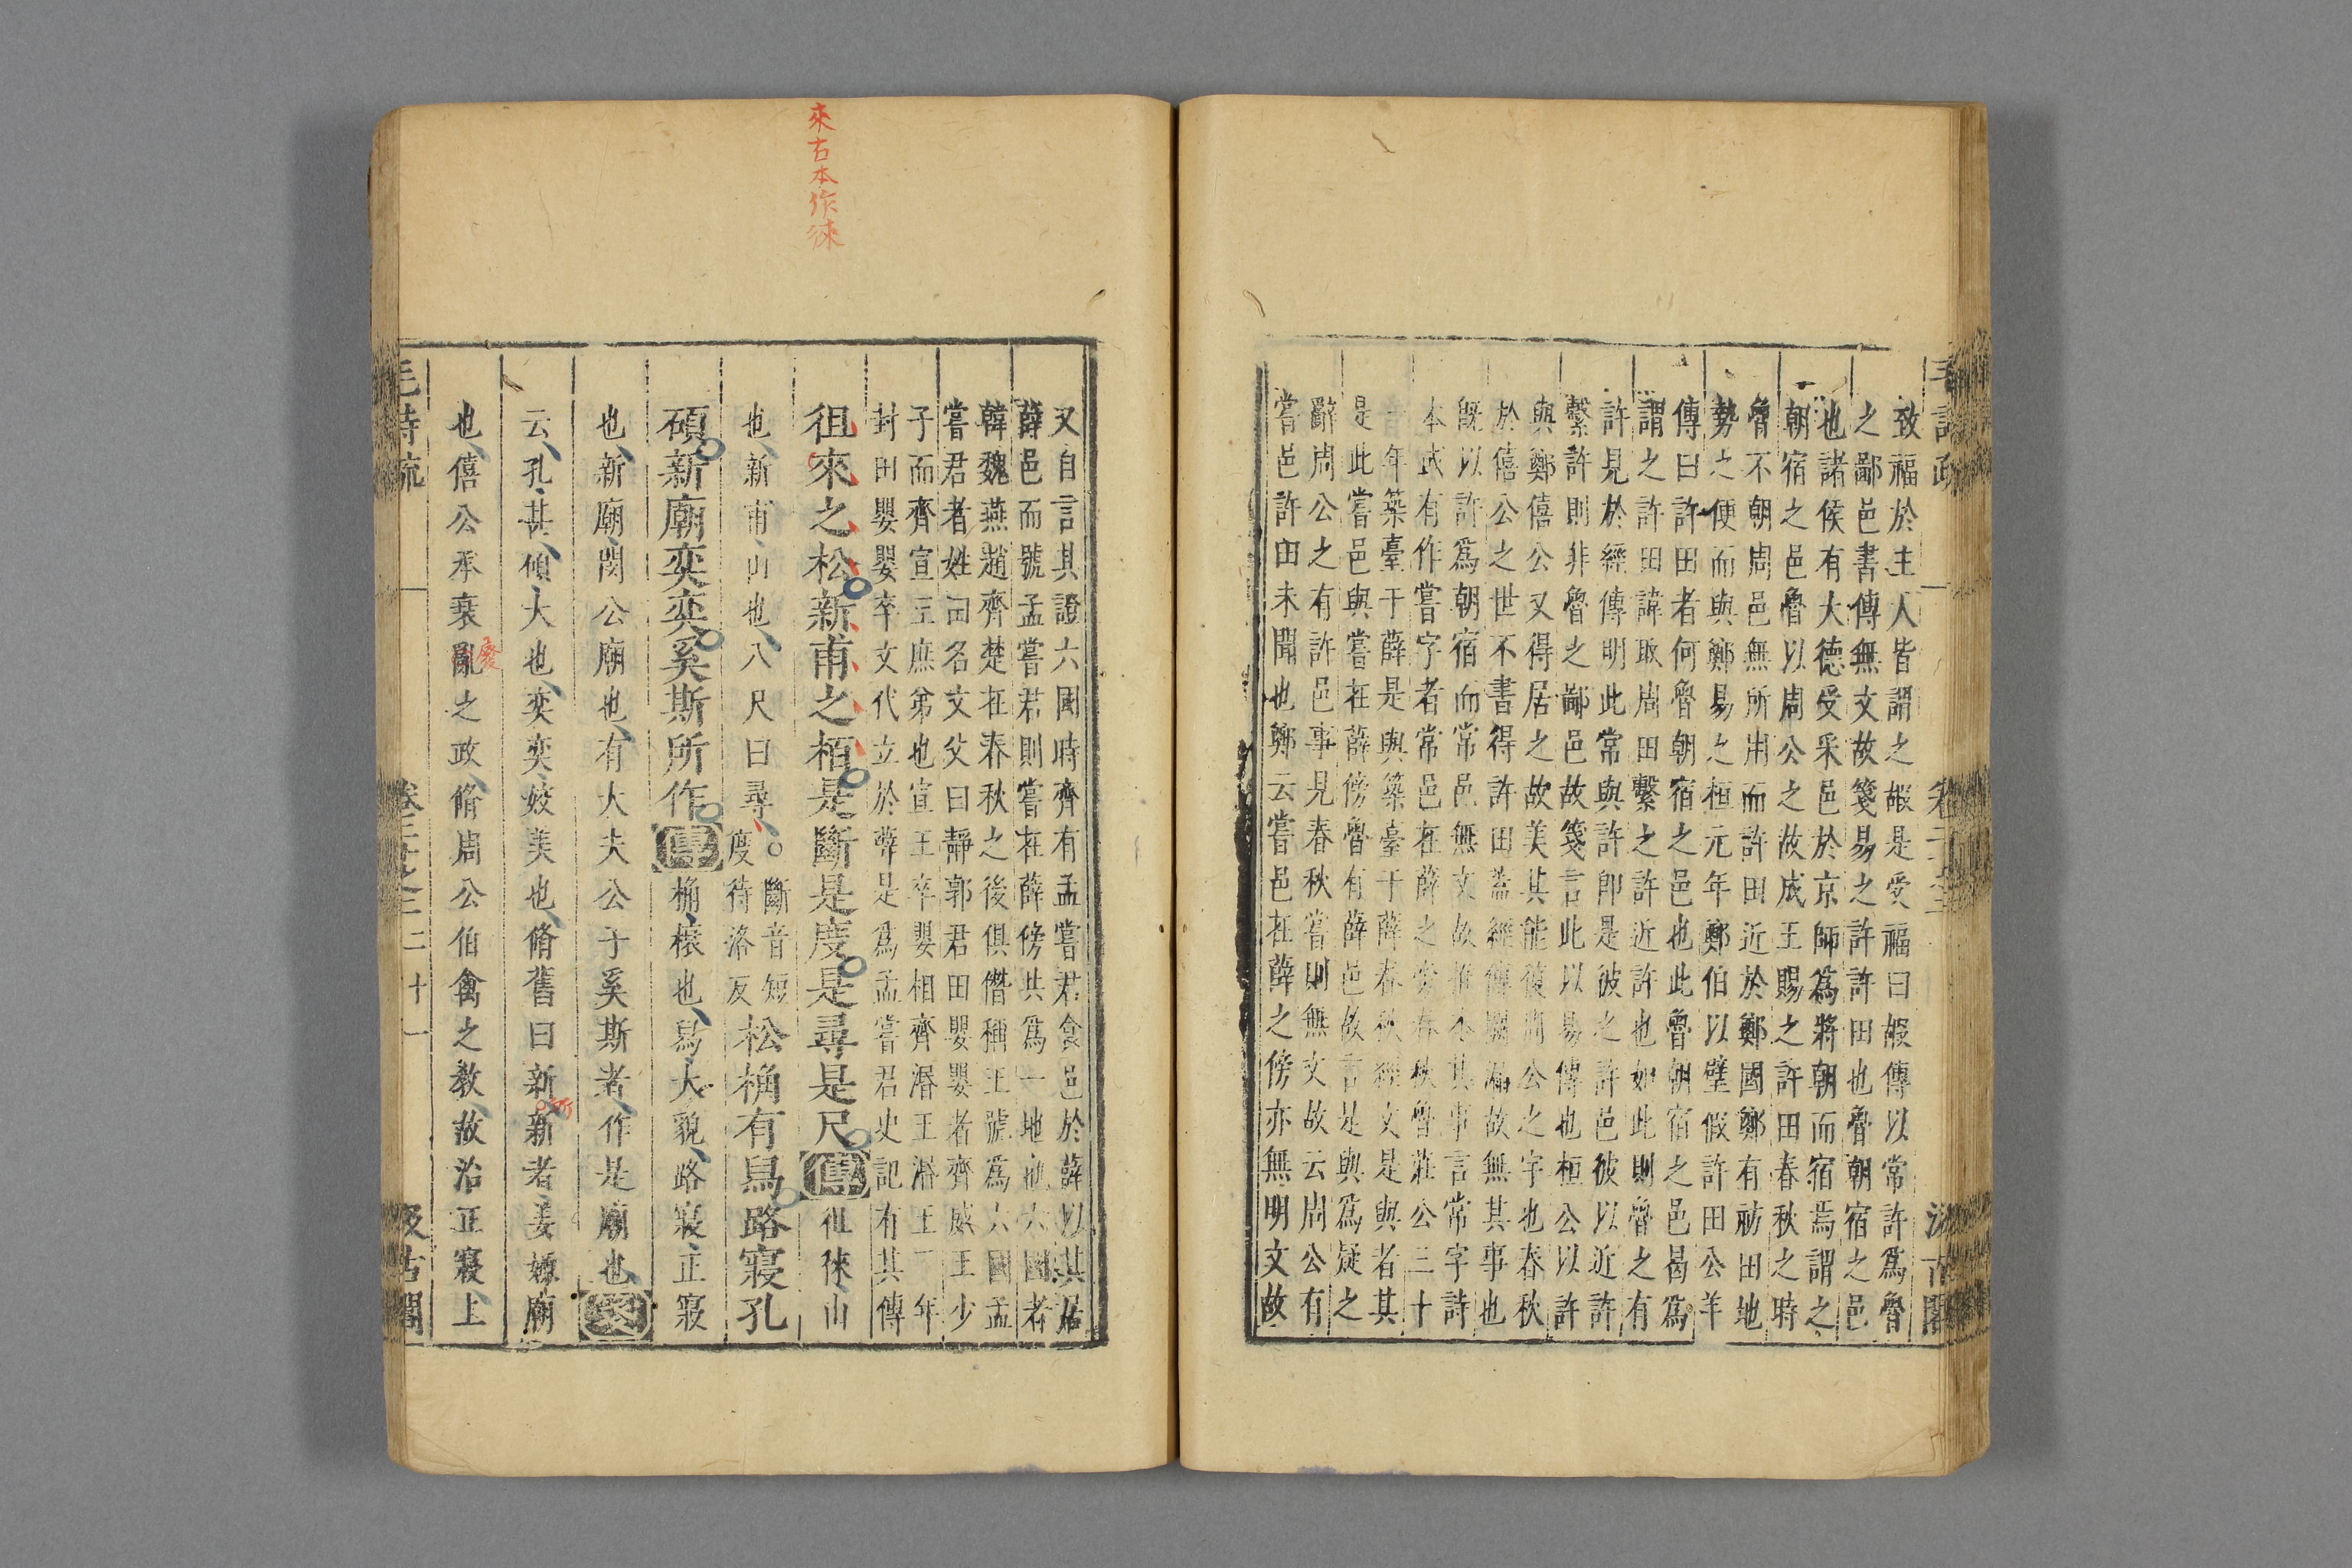 致福於主人皆謂之嘏是受福曰嘏傳以常許爲魯
之鄙邑書傳無文故箋易之許許田也魯朝宿之邑
也諸侯有大德受采邑於京師爲將朝而宿焉謂之
朝宿之邑魯以周公之故成王賜之許田春秋之時
魯不朝周邑無所用而許田近於鄭國鄭有祊田地
勢之便而與鄭易之桓元年鄭伯以璧假許田公羊
傳曰許田者何魯朝宿之邑也此魯朝宿之邑曷爲
謂之許田諱取周田繫之許近許也如此則魯之有
許見於經傳明此常與許即是彼之許邑彼以近許
繫許則非魯之鄙邑故箋言此以易傳也桓公以許
與鄭僖公又得居之故美其能復周公之宇也春秋
於僖公之世不書得許田蓋經傳闕漏故無其事也
既以許爲朝宿而常邑無文故推本其事言常字詩
本或有作嘗字者常邑在薛之旁春秋魯莊公三十
一年築臺于薛是與築臺于薛春秋經文是與者其
是此嘗邑與嘗在薛傍魯有薛邑故言是與爲疑之
辭周公之有許邑事見春秋嘗則無文故云周公有
嘗邑許田未聞也鄭云嘗邑在薛之傍亦無明文故
汲古閣
又自言其證六國時齊有孟嘗君食邑於薛以其居
薛邑而號孟嘗君則嘗在薛傍共爲一地也六國者
韓魏燕趙齊楚在春秋之後俱僭稱王號爲六國孟
嘗君者姓田名文父曰靜郭君田嬰嬰者齊威王少
子而齊宣王庶弟也宣王卒嬰相齊湣王湣王二年
封田嬰嬰卒文代立於薛是爲孟嘗君史記有其傳
徂來之松新甫之栢是斷是度是尋是尺傳徂徠山
也新甫山也八尺曰尋○斷音短度待洛反松桷有舄路寢孔
碩新廟奕奕奚斯所作傳桷榱也舄大貌路寢正寢
也新廟閔公廟也有大夫公子奚斯者作是廟也箋
云孔甚碩大也奕奕姣美也脩舊曰新新者姜嫄廟
也僖公承衰亂之政脩周公伯禽之教故治正寢上
毛詩疏 卷二十之二 二十一 汲古閣
來古本作徠
廢
所